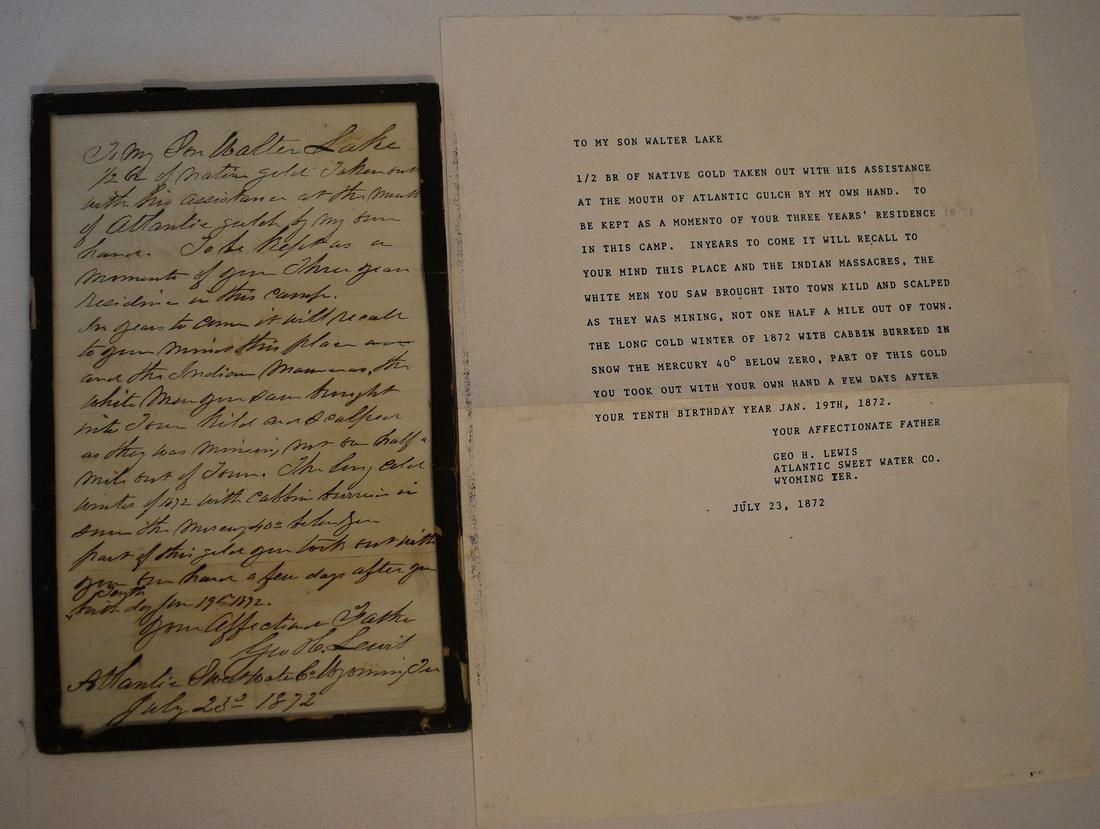 To my Son Walter Lake
1/2 of native gold Taken out
with his assistance at the mouth
of Atlantic gulch by my own
hand. To be Kept as a
momento of your Three year
residence in this camp.
In years to come it will recall
to your mind this place and
and the Indian Massacres, the
white Men you saw brought
into Town Kild and scalped
as they was mining, not one half a
mile out of Town. The long cold
winter of 1872 with cabbin burried in
snow the Mercury 40° below Zero
part of this gold you took out with
your own hand a few days after your
Tenth
birth day Jan 19th 1872.
Your Affectionate Father
Geo H. Lewis
Atlantic Sweet Water Co Wyoming Ter
July 23d 1872
TO MY SON WALTER LAKE
1/2 BR OF NATIVE GOLD TAKEN OUT WITH HIS ASSISTANCE
AT THE MOUTH OF ATLANTIC GULCH BY MY OWN HAND. TO
BE KEPT AS A MOMENTO OF YOUR THREE YEARS' RESIDENCE
IN THIS CAMP. INYEARS TO COME IT WILL RECALL TO
YOUR MIND THIS PLACE AND THE INDIAN MASSACRES, THE
WHITE MEN YOU SAW BROUGHT INTO TOWN KILD AND SCALPED
AS THEY WAS MINING, NOT ONE HALF A MILE OUT OF TOWN.
THE LONG COLD WINTER OF 1872 WITH CABBIN BURRIED IN
SNOW THE MERCURY 40° BELOW ZERO, PART OF THIS GOLD
YOU TOOK OUT WITH YOUR OWN HAND A FEW DAYS AFTER
YOUR TENTH BIRTHDAY YEAR JAN. 19TH, 1872.
YOUR AFFECTIONATE FATHER
GEO H. LEWIS
ATLANTIC SWEET WATER CO.
WYOMING TER.
JULY 23, 1872